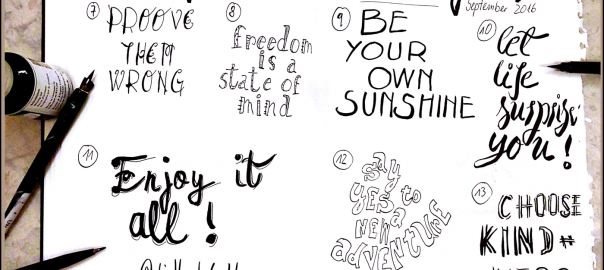 September 2016
7
PROOVE
THEM
WRONG
8
freedom
is a
state of
mind
9
BE
YOUR
OWN
SUNSHINE
10
let
life
surprise
you!
11
Enjoy it
all!
12
say
yes to
a
NEW
adventure
13
CHOOSE
KIND-